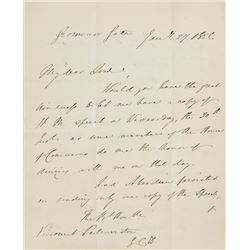 Grosvenor Gate Jany 27 1856
My dear Lord!
Would you have the great
kindness to let me have a copy of
H M speech a Wednesday, the 30th
as some members of the House
of Commons do me the honor of
dining with me on that day.
Lord Aberdeen persisted
in sending only one copy of the Speech,
The Rt Honble
Viscount Palmerston